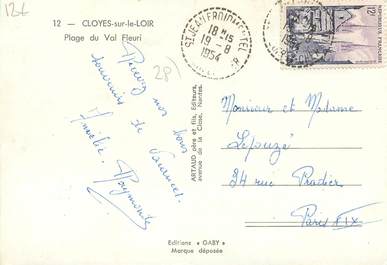 126
12 - CLOYES-sur-le-LOIR
Plage du Val Fleuri
28
18 H 15
19 - 8
1954
12F
REPUBLIQUE FRANÇAISE
Recevez nos bons
souvenirs de vacances.
Raymonde
ARTAUD père et fils, Editeurs,
avenue de la Close, Nantes.
Monsieur et Madame
Lepouzé
34 rue Pradier
Paris XIX
Editions « GABY »
Marque déposée